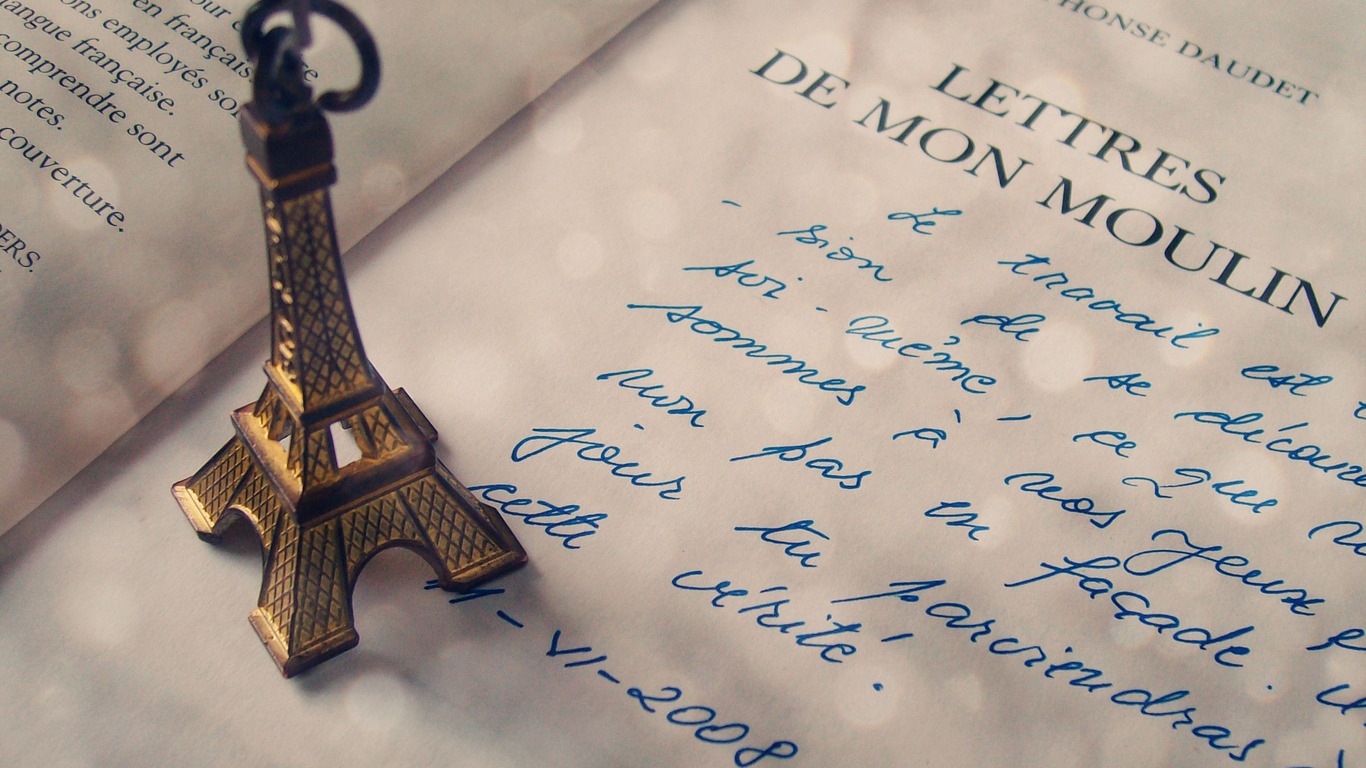 our
en français
ons employés so
langue française.
comprendre sont
notes.
couverture.
DERS.
PHONSE DAUDET
LETTRES
DE MON MOULIN
- Le travail est
sion de se découv
soi-même, ce que
sommes à nos yeux
non pas en façade.
jour tu parviendras
cette vérité.
VI-2008